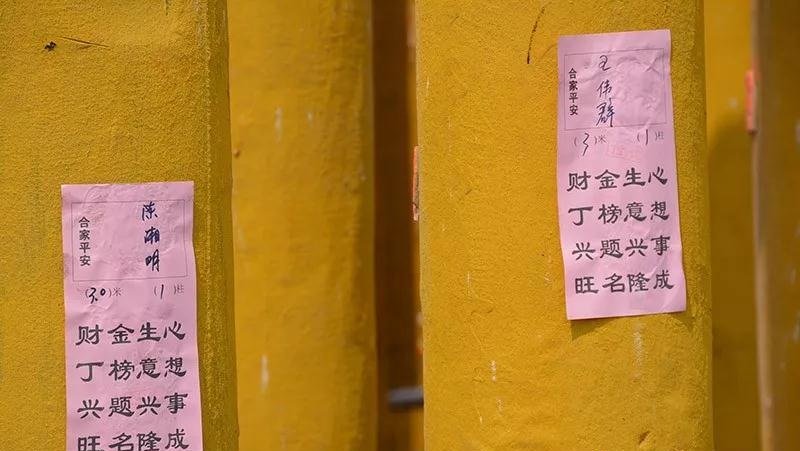 合家平安
陈湘明
(3.0)米 (1)柱
财丁兴旺
金榜题名
生意兴隆
心想事成
合家平安
王伟群
(3)米 (1)柱
财丁兴旺
金榜题名
生意兴隆
心想事成